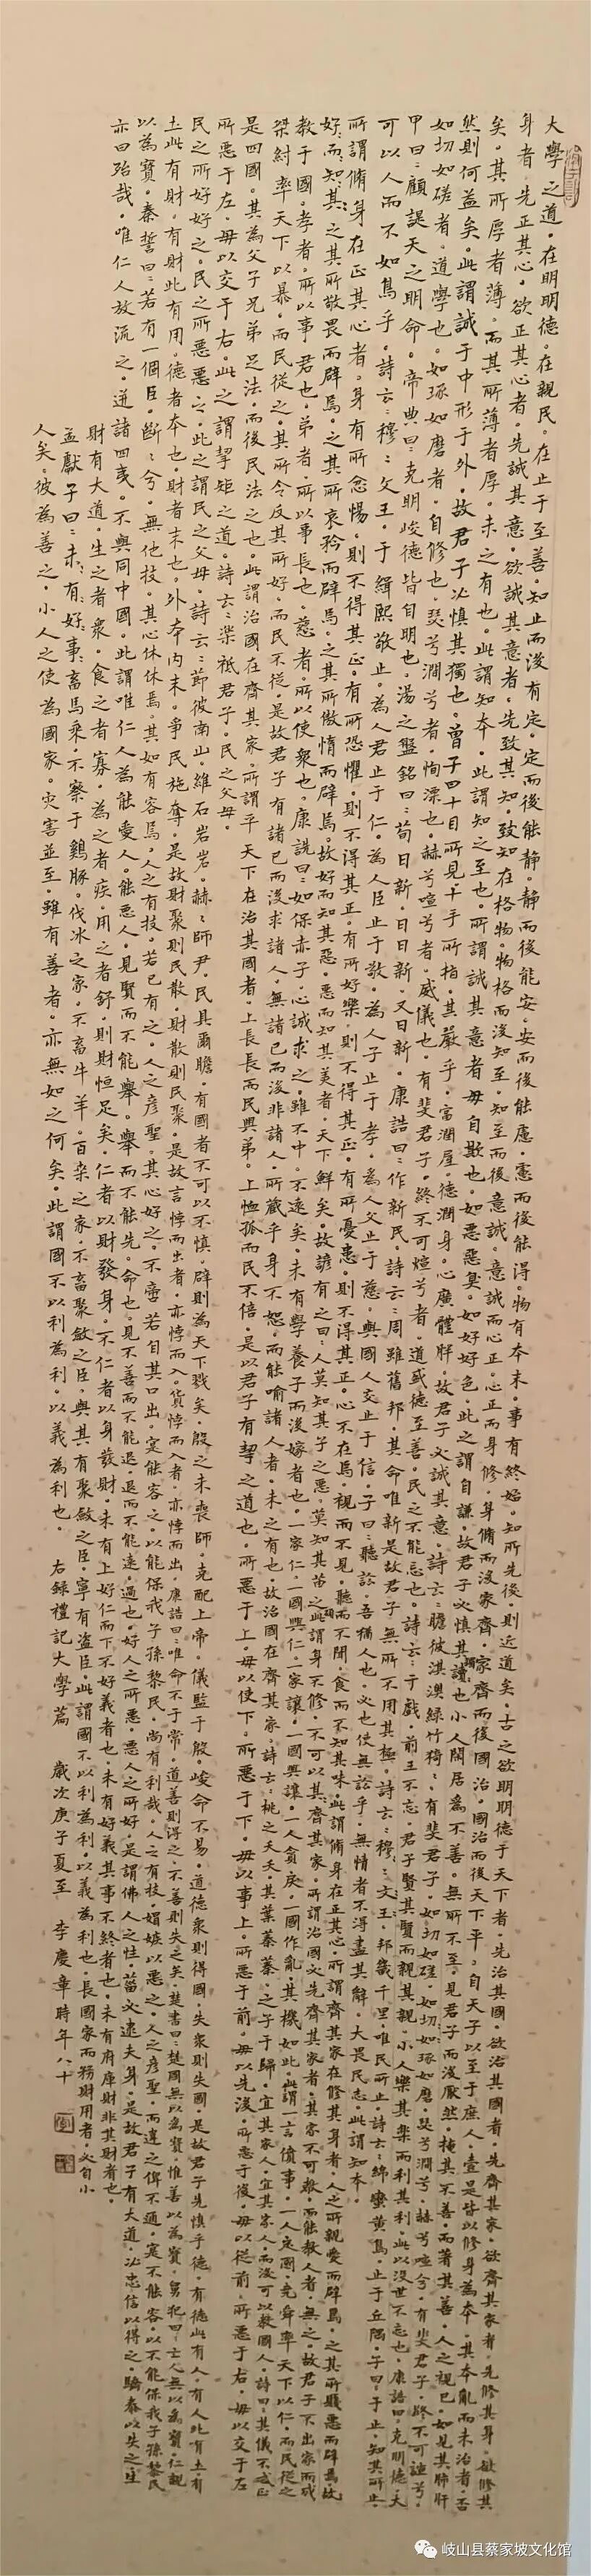 大學之道。在明明德。在親民。在止于至善。知止而後有定。定而後能靜。靜而後能安。安而後能慮。慮而後能得。物有本末。事有終始。知所先後。則近道矣。古之欲明明德于天下者。先治其國。欲治其國者。先齊其家。欲齊其家者。先修其身。欲修其
身者。先正其心。欲正其心者。先誠其意。欲誠其意者。先致其知。致知在格物。物格而後知至。知至而後意誠。意誠而心正。心正而身修。身脩而後家齊。家齊而後國治。國治而後天下平。自天子以至于庶人。壹是皆以修身為本。其本亂而未治者。否
矣。其所厚者薄。而其所薄者厚。未之有也。此謂知本。此謂知之至也。所謂誠其意者毋自欺也。如惡惡臭。如好好色。此之謂自謙。故君子必慎其獨也小人閒居為不善。無所不至。見君子而後厭然。掩其不善。而著其善。人之視己。如見其肺肝
然則何益矣。此謂誠于中形于外。故君子必慎其獨也。曾子曰十目所見。十手所指。其嚴乎。富潤屋。德潤身。心廣體胖。故君子必誠其意。詩云瞻彼淇澳綠竹猗:。有斐君子。如切如磋。如琢如磨。瑟兮澗兮。赫兮喧兮。有斐君子。終不可諠兮。
如切如磋者。道學也。如琢如磨者。自修也。瑟兮澗兮者。恂溧也。赫兮喧兮者。威儀也。有斐君子。終不可諠兮者。道盛德至善。民之不能忘也。詩云:于戲。前王不忘。君子賢其賢而親其親。小人樂其樂而利其利。此以沒世不忘也。康誥曰。克明德。大
甲曰:顧諟天之明命。帝典曰:克明峻德皆自明也。湯之盤銘曰:苟日新。日日新。又日新。康誥曰:作新民。詩云:周雖舊邦。其命唯新是故君子無所不用其極。詩云:邦畿千里。唯民所止。詩云:緡蠻黃鳥。止于丘隅。子曰。于止。知其所止。
可以人而不如鳥乎。詩云:穆:文王。于緝熙敬止。為人君止于仁。為人臣止于敬。為人子止于孝。為人父止于慈。與國人交止于信。子曰:聽訟。吾猶人也。必也使無訟乎。無情者不得盡其辭。大畏民志。此謂知本。
所謂脩身在正其心者。身有所忿惕。則不得其正。有所恐懼。則不得其正。有所好樂。則不得其正。有所憂患。則不得其正。心不在焉。視而不見。聽而不聞。食而不知其味。此謂脩身在正其心。所謂齊其家在修其身者。人之所親愛而辟焉。之其所賤惡而辟焉故
好:而:知:其:之其所敬畏而辟焉。之其所哀矜而辟焉。之其所傲惰而辟焉。故好而知其惡。惡而知其美者。天下鮮矣。故諺有之曰:人莫知其子之惡。莫知其苗之碩此謂身不修。不可以其齊其家。所謂治國必先齊其家者。其家不可教。而能教人者。無之。故君子不出家而成
教于國。孝者。所以事君也。弟者。所以事長也。慈者。所以使衆也。康誥曰:如保赤子。心誠求之。雖不中。不遠矣。未有學養子而後嫁者也。一家仁。一國興仁。一家讓。一國興讓。一人貪戾。一國作亂。其機如此。此謂一言僨事。一人定國。堯舜率天下以仁。而民從之
桀紂率天下以暴。而民從之。其所令反其所好。而民不從。是故君子有諸己而後求諸人。無諸己而後非諸人。所藏乎身不恕。而能喻諸人者。未之有也。故治國在齊其家。詩云:桃之夭夭。其葉蓁蓁。之子于歸。宜其家人。宜其家人。而後可以教國人。詩曰:其儀不忒正
是四國。其為父子兄弟足法。而後民法之也。此謂治國在齊其家。所謂平天下在治其國者。上長長而民興弟。上恤孤而民不倍。是以君子有挈之道也。所惡于上。毋以使下。所惡于下。毋以事上。所惡于前。毋以先後。所惡于後。毋以從前。所惡于右。毋以交于左
所惡于左。毋以交于右。此之謂挈矩之道。詩云:樂祇君子。民之父母。
民之所好好之。民之所惡惡之。此之謂民之父母。詩云:節彼南山。維石岩岩。赫:師尹。民具爾瞻。有國者不可以不慎。辟則為天下戮矣。殷之未喪師。克配上帝。儀監于殷峻命不易。道德衆則得國。失衆則失國。是故君子先慎乎德。有德此有人。有人此有土有
土此有財。有財此有用。德者本也。財者末也。外本內末。爭民施奪。是故財聚則民散。財散則民聚。是故言悖而出者。亦悖而入。貨悖而入者。亦悖而出。康誥曰:唯命不于常。道善則得之。不善則失之矣。楚書曰楚國無以為寶。惟善以為寶。舅犯曰:亡人無以為寶。仁親
以為寶。秦誓曰:若有一個臣。斷:兮。無他技。其心休休焉。其如有容焉。人之有技。若己有之。人之彥聖。其心好之。不啻若自其口出。寔能容之。以能保我子孫黎民。尚有利哉。人之有技。媢嫉以惡之。人之彥聖。而違之俾不通。寔不能容。以不能保我子孫黎民
亦曰殆哉。唯仁人放流之。迸諸四夷。不與同中國。此謂唯仁人為能愛人。能惡人。見賢而不能舉。舉而不能先。命也。見不善而不能退。退而不能遠。過也。好人之所惡。惡人之所好。是謂佛人之性。菑必逮夫身。是故君子有大道。必忠信以得之。驕泰以失之。生
財有大道。生之者衆。食之者寡。為之者疾。用之者舒。則財恒足矣。仁者以財發身。不仁者以身發財。未有上好仁而下不好義者也。未有好義其事不終者也。未有府庫財非其財者也。
孟獻子曰:未:有:好:事:畜馬乘。不察于鷄豚。伐冰之家。不畜牛羊。百乘之家。不畜聚斂之臣。與其有聚斂之臣。寧有盜臣。此謂國不以利為利。以義為利也。長國家而務財用者。必自小
人矣。彼為善之。小人之使為國家。灾害並至。雖有善者。亦無如之何矣。此謂國不以利為利。以義為利也。 右錄禮記大學篇 歲次庚子夏至 李慶章時年八十
岐山县蔡家坡文化馆